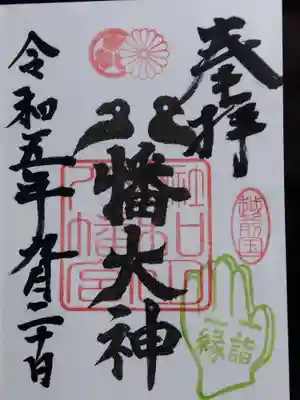 奉拝
越前国
縁詣
八幡大神
令和五年九月二十日